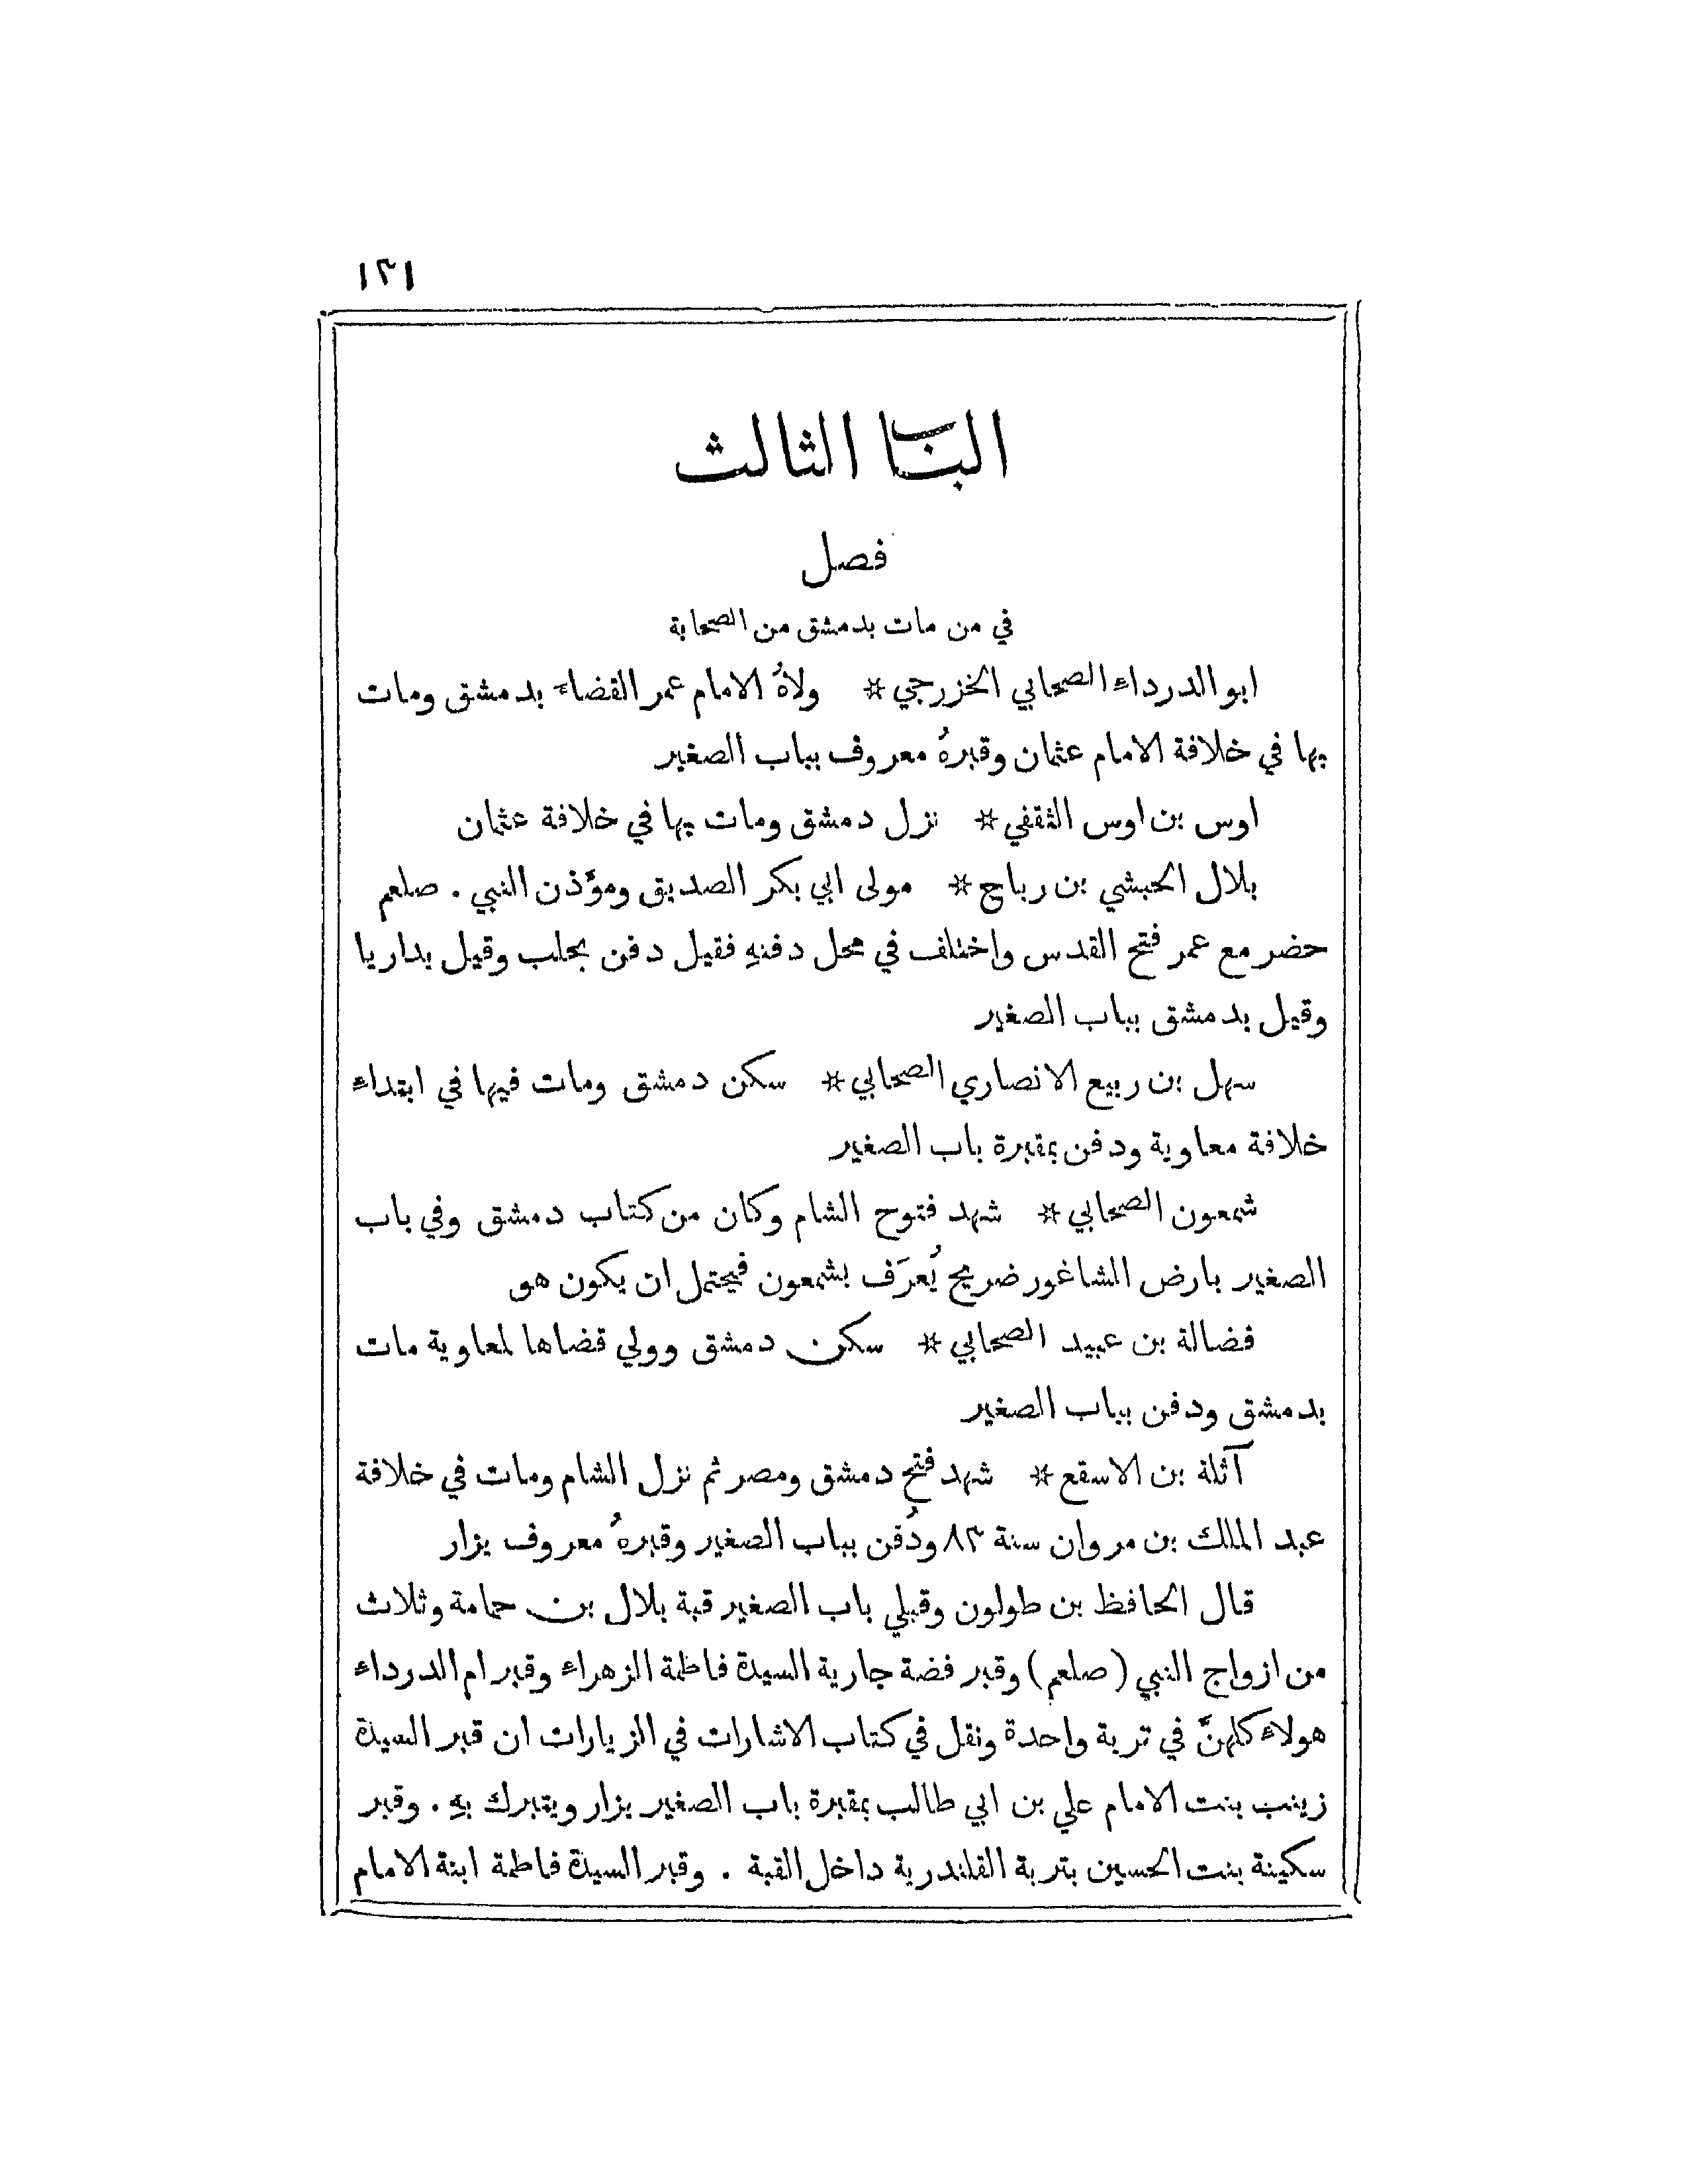 ١٢١
الباب الثالث
فصل
في من مات بدمشق من الصحابة
ابو الدرداء الصحابي الخزرجي * ولاهُ الامام عمر القضاء بدمشق ومات
بها في خلافة الامام عثمان وقبرهُ معروف بباب الصغير
اوس بن اوس الثقفي * نزل دمشق ومات بها في خلافة عثمان
بلال الحبشي بن رباح * مولى ابي بكر الصديق ومؤذن النبي . صلعم
حضر مع عمر فتح القدس واختلف في محل دفنهِ فقيل دفن بحلب وقيل بداريا
وقيل بدمشق بباب الصغير
سهل بن ربيع الانصاري الصحابي * سكن دمشق ومات فيها في ابتداء
خلافة معاوية ودفن بمقبرة باب الصغير
شمعون الصحابي * شهد فتوح الشام وكان من كتاب دمشق وفي باب
الصغير بارض الشاغور ضريح يُعرَف بشمعون فيحتمل ان يكون هو
فضالة بن عبيد الصحابي * سكن دمشق وولي قضاها لمعاوية مات
بدمشق ودفن بباب الصغير
آثلة بن الاسقع * شهد فتح دمشق ومصر ثم نزل الشام ومات في خلافة
عبد الملك بن مروان سنة ٨٣ ودُفن بباب الصغير وقبرهُ معروف يزار
قال الحافظ بن طولون وقبلي باب الصغير قبة بلال بن حمامة وثلاث
من ازواج النبي (صلعم) وقبر فضة جارية السيدة فاطمة الزهراء وقبر ام الدرداء
هولاء كلهنَّ في تربة واحدة ونقل في كتاب الاشارات في الزيارات ان قبر السيدة
زينب بنت الامام علي بن ابي طالب بمقبرة باب الصغير يزار ويتبرك بهِ . وقبر
سكينة بنت الحسين بتربة القلندرية داخل القبة . وقبر السيدة فاطمة ابنة الامام